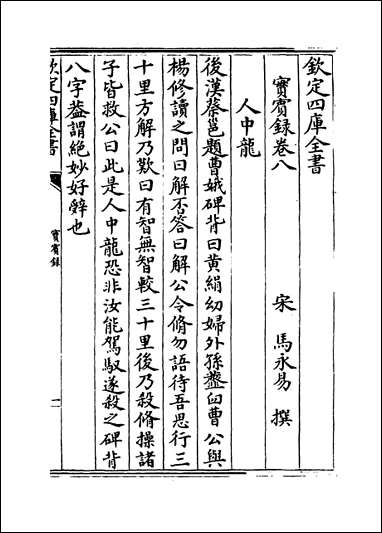 欽定四庫全書
實賓録卷八
宋　馬永易　撰
人中龍
後漢蔡邕題曹娥碑背曰黄絹幼婦外孫虀臼曹公與
楊修讀之問曰解否答曰解公令脩勿語待吾思行三
十里方解乃歎曰有智無智較三十里後乃殺脩操諸
子皆救公曰此是人中龍恐非汝能駕馭遂殺之碑背
八字葢謂絶妙好辭也
欽定四庫全書
實賓録
一